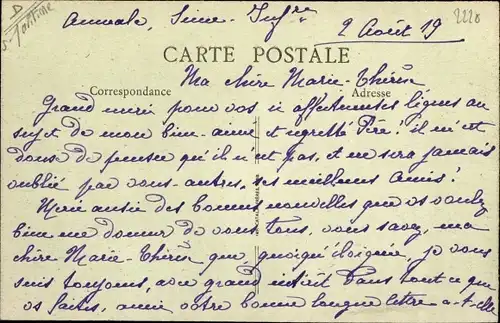 Aumale, Seine-Infre
2 Août 19
2220
CARTE POSTALE
Ma chère Marie-Thérèse
Correspondance Adresse
Grand merci pour vos si affectueuses lignes au
sujet de mon bien-aimé et regretté Père! il m'est
doux de penser qu'il n'est pas, et ne sera jamais
oublié par vous-autres, ses meilleurs amis!
Merci aussi des bonnes nouvelles que vous voulez
bien me donner de vous tous, vous savez, ma
chère Marie-Thérèse que, quoique éloignée, je vous
suis toujours, avec grand intérêt dans tout ce que
vs faites, aussi votre bonne longue lettre a-t-elle